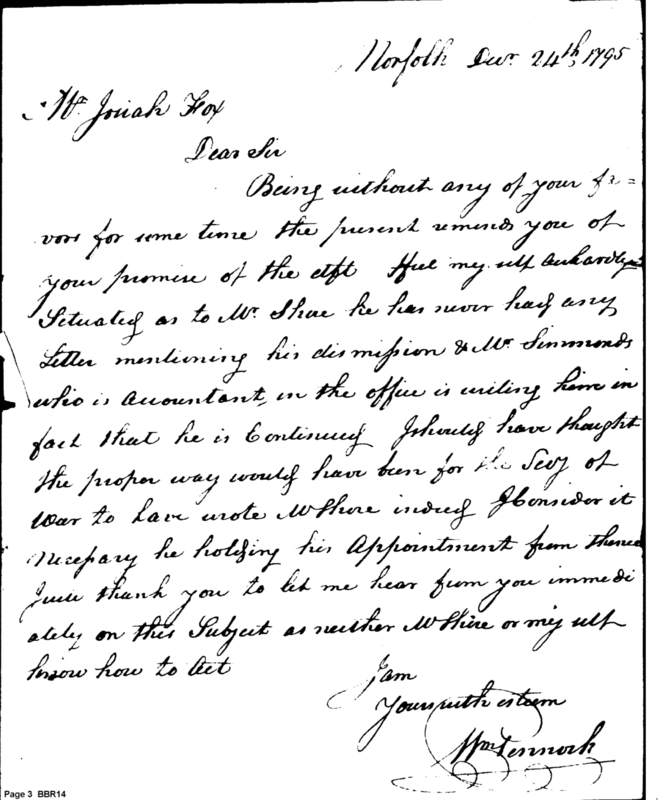 Norfolk Decr. 24th, 1795
Mr. Josiah Fox
Dear Sir
Being without any of your fa=
vors for some time the present reminds you of
your promise of the I feel my self Aukardly
Situated as to Mr. Shore he has never had any
Letter mentioning his dismission & Mr. Simmonds
who is Accountant, in the office is writing him in
fact that he is Continued I should have thought
the proper way would have been for the Secy of
War to have wrote Mr Shore indeed I Consider it
Necessary he holding his Appointment from thence
I will thank you to let me hear from you immedi
ately on this Subject as neither Mr Shore or my self
know how to Act
I am
Yours with esteem
Wm Pennock
Page 3 BBR14